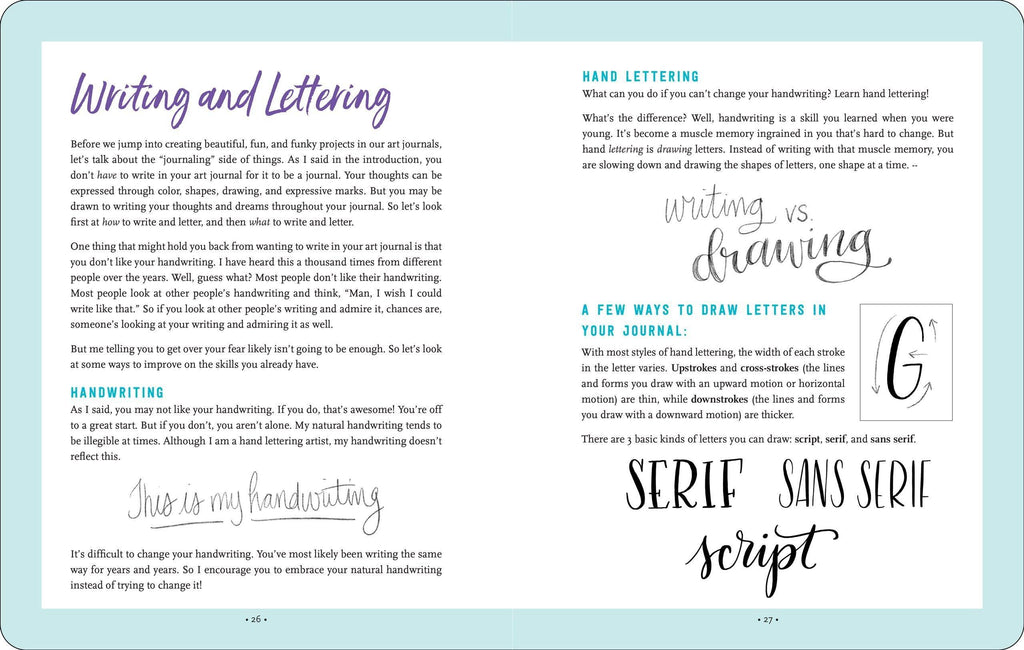 Writing and Lettering
Before we jump into creating beautiful, fun, and funky projects in our art journals,
let's talk about the “journaling” side of things. As I said in the introduction, you
don't have to write in your art journal for it to be a journal. Your thoughts can be
expressed through color, shapes, drawing, and expressive marks. But you may be
drawn to writing your thoughts and dreams throughout your journal. So let's look
first at how to write and letter, and then what to write and letter.
One thing that might hold you back from wanting to write in your art journal is that
you don't like your handwriting. I have heard this a thousand times from different
people over the years. Well, guess what? Most people don't like their handwriting.
Most people look at other people's handwriting and think, “Man, I wish I could
write like that.” So if you look at other people's writing and admire it, chances are,
someone's looking at your writing and admiring it as well.
But me telling you to get over your fear likely isn't going to be enough. So let's look
at some ways to improve on the skills you already have.
HANDWRITING
As I said, you may not like your handwriting. If you do, that's awesome! You're off
to a great start. But if you don't, you aren't alone. My natural handwriting tends to
be illegible at times. Although I am a hand lettering artist, my handwriting doesn't
reflect this.
This is my handwriting
It's difficult to change your handwriting. You've most likely been writing the same
way for years and years. So I encourage you to embrace your natural handwriting
instead of trying to change it!
• 26 •
HAND LETTERING
What can you do if you can't change your handwriting? Learn hand lettering!
What's the difference? Well, handwriting is a skill you learned when you were
young. It's become a muscle memory ingrained in you that's hard to change. But
hand lettering is drawing letters. Instead of writing with that muscle memory, you
are slowing down and drawing the shapes of letters, one shape at a time. --
writing vs.
drawing
A FEW WAYS TO DRAW LETTERS IN
YOUR JOURNAL:
With most styles of hand lettering, the width of each stroke
in the letter varies. Upstrokes and cross-strokes (the lines
and forms you draw with an upward motion or horizontal
motion) are thin, while downstrokes (the lines and forms
you draw with a downward motion) are thicker.
G
There are 3 basic kinds of letters you can draw: script, serif, and sans serif.
SERIF SANS SERIF
script
• 27 •